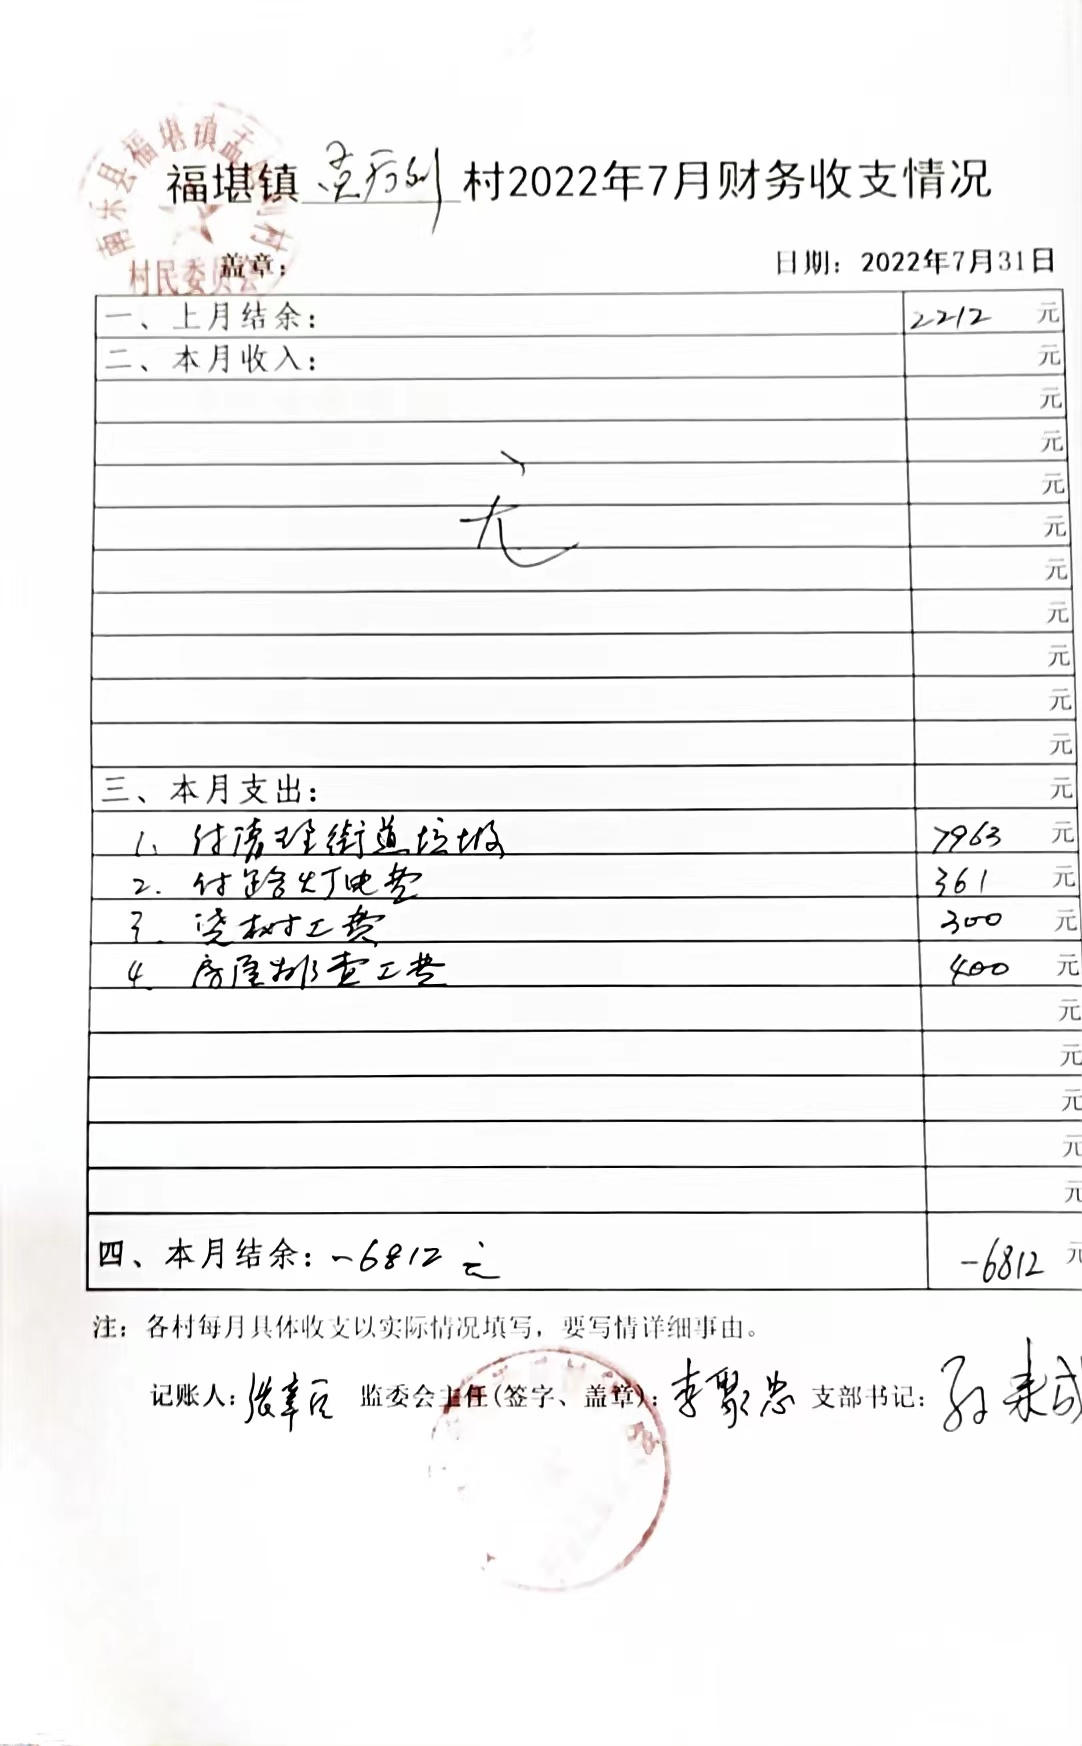 南乐县福堪镇孟
村
村民委员会
福堪镇 孟 村2022年7月财务收支情况
盖章： 日期：2022年7月31日
一、上月结余： 2212 元
二、本月收入： 元
元
元
元
无 元
元
元
元
元
元
三、本月支出： 元
1、付清理街道垃圾 7963 元
2. 付路灯电费 361 元
3. 浇树工费 300 元
4. 房屋排查工费 400 元
元
元
元
元
元
四、本月结余：-6812 元 -6812 元
注：各村每月具体收支以实际情况填写，要写情详细事由。
记账人： 监委会主任(签字、盖章)：李聚忠 支部书记：